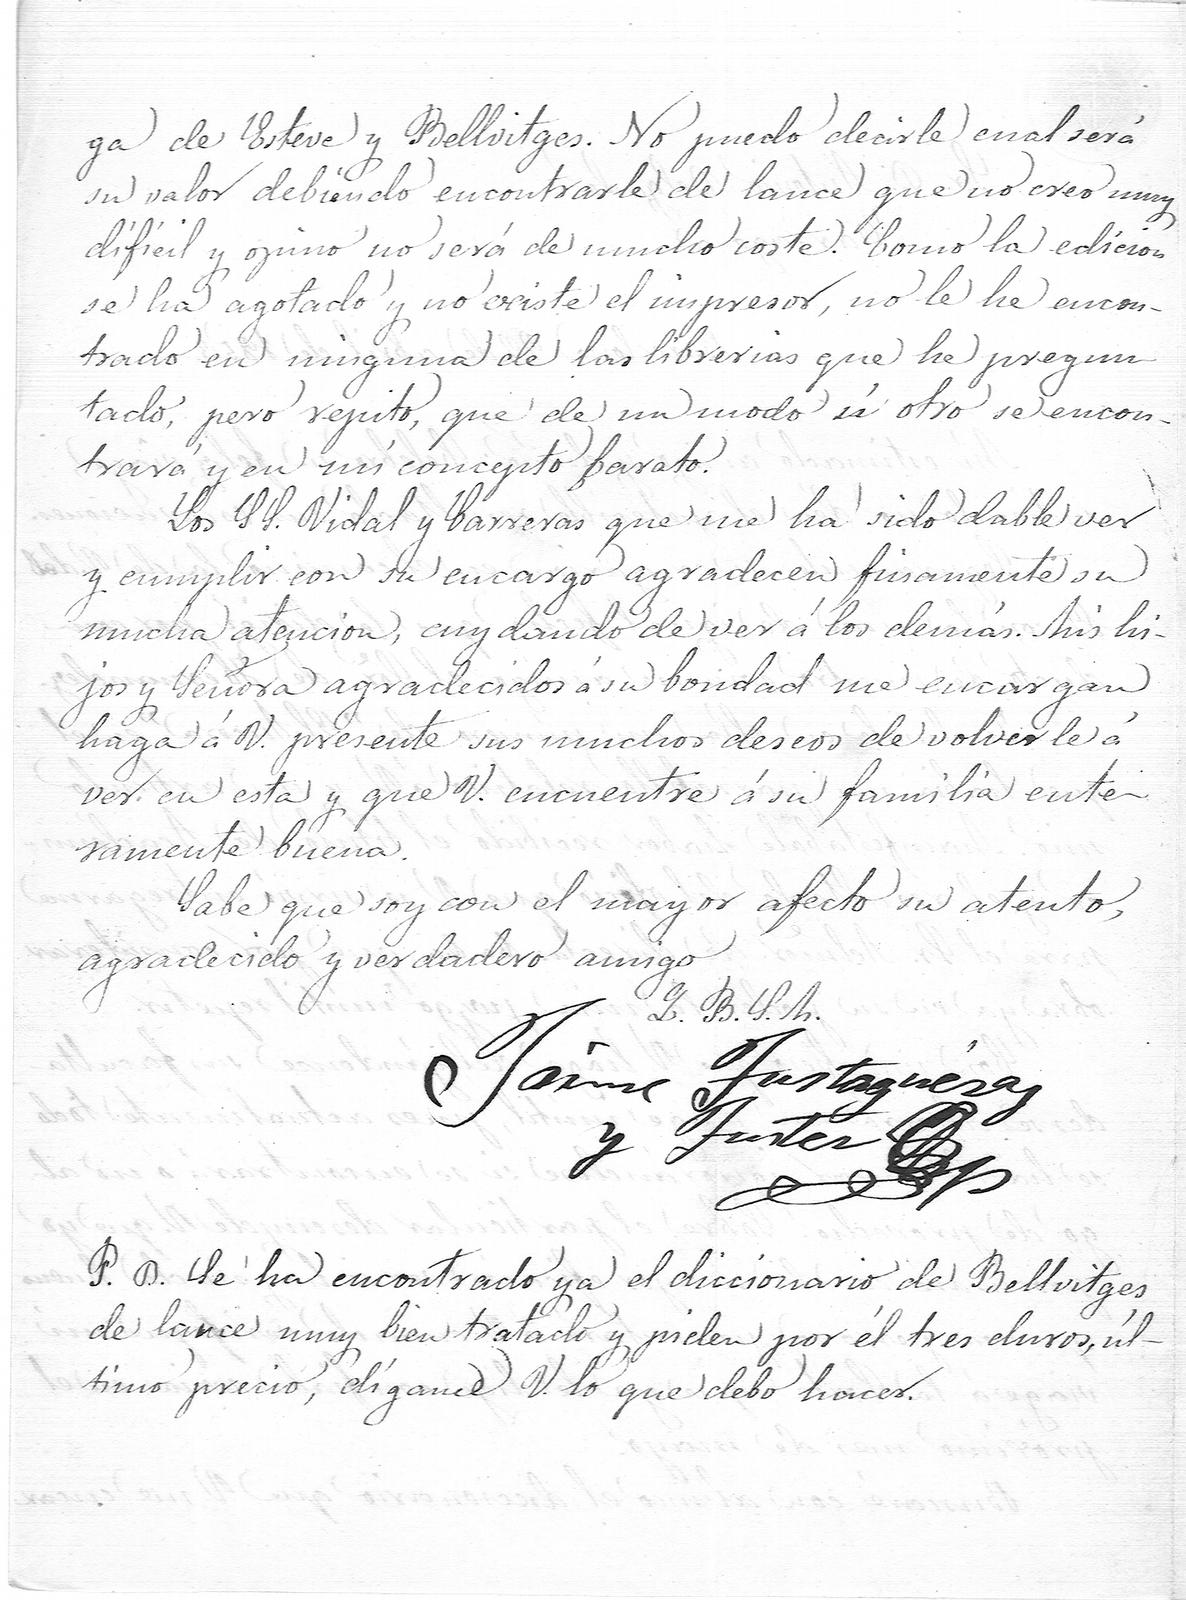 ga de Esteve y Bellvitges. No puedo decirle cual será
su valor debiendo encontrarle de lance que no creo muy
dificil y opino no será de mucho coste. Como la edicion
se ha agotado y no existe el impresor, no le he encon-
trado en ninguna de las librerias que he pregun
tado, pero repito, que de un modo ú otro se encon-
trará y en mi concepto barato.
Los SS. Vidal y Carreras que me ha sido dable ver
y cumplir con su encargo agradecen finamente su
mucha atencion, cuydando de ver á los demás. Mis hi-
jos y Señora agradecidos á su bondad me encargan
haga á V. presente sus muchos deseos de volverle á
ver en esta y que V. encuentre á su familia ente-
ramente buena.
Sabe que soy con el mayor afecto su atento,
agradecido y verdadero amigo
Q. B. S. M.
Jaime Fustagueras
y Fuster
P. D. Se ha encontrado ya el diccionario de Bellvitges
de lance muy bien tratado y piden por él tres duros, úl-
timo precio, dígame V. lo que debo hacer.